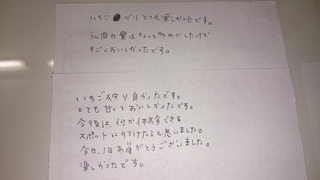 いちごづりとても楽しかったです。
うどんの量はちょっと多めでしたけど
すごくおいしかったです。
いちご狩り良かったです。
とても甘くておいしかったです。
今後は、何か体験できる
スポットに行けたらと思いました。
今日、1日ありがとうございました。
楽しかったです。